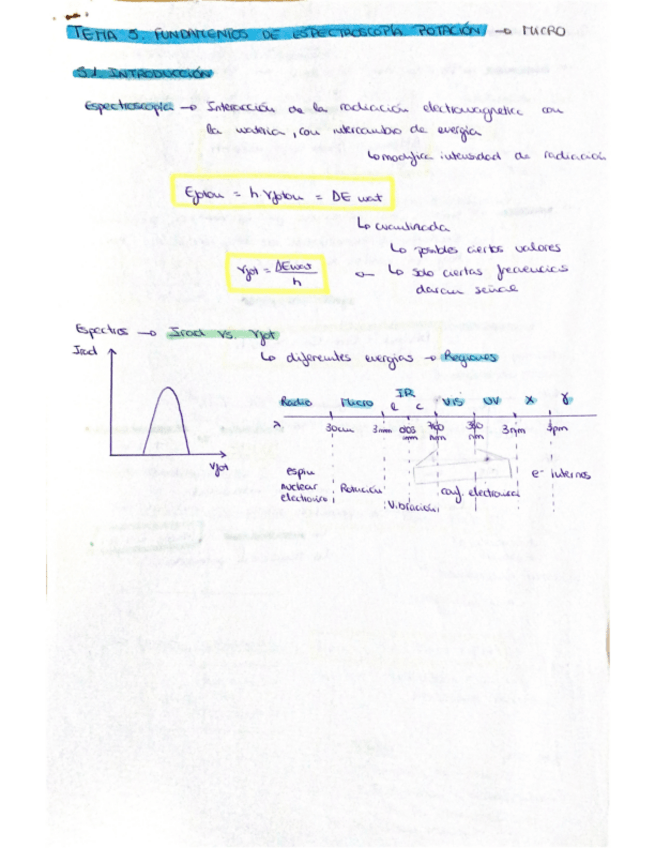 TEMA 5. FUNDAMENTOS DE ESPECTROSCOPÍA ROTACIÓN → MICRO
5.1 INTRODUCCIÓN
Espectroscopía → Interacción de la radiación electromagnética con
la materia, con intercambio de energía
↳ modifica intensidad de radiación
Efoton = h νfoton = ΔE mat
↳ cuantizada
↳ posibles ciertos valores
νfot = ΔEmat / h ← ↳ solo ciertas frecuencias
darán señal
Espectros → Irad vs. νfot
Irad
↳ diferentes energías → Regiones
νfot
IR
Radio Micro l c VIS UV X γ
λ 30cm 3mm 003 mm 780 nm 350 nm 3nm 3pm
espín nuclear electrónico
Rotación
Vibración
conf. electrónica
e⁻ internos